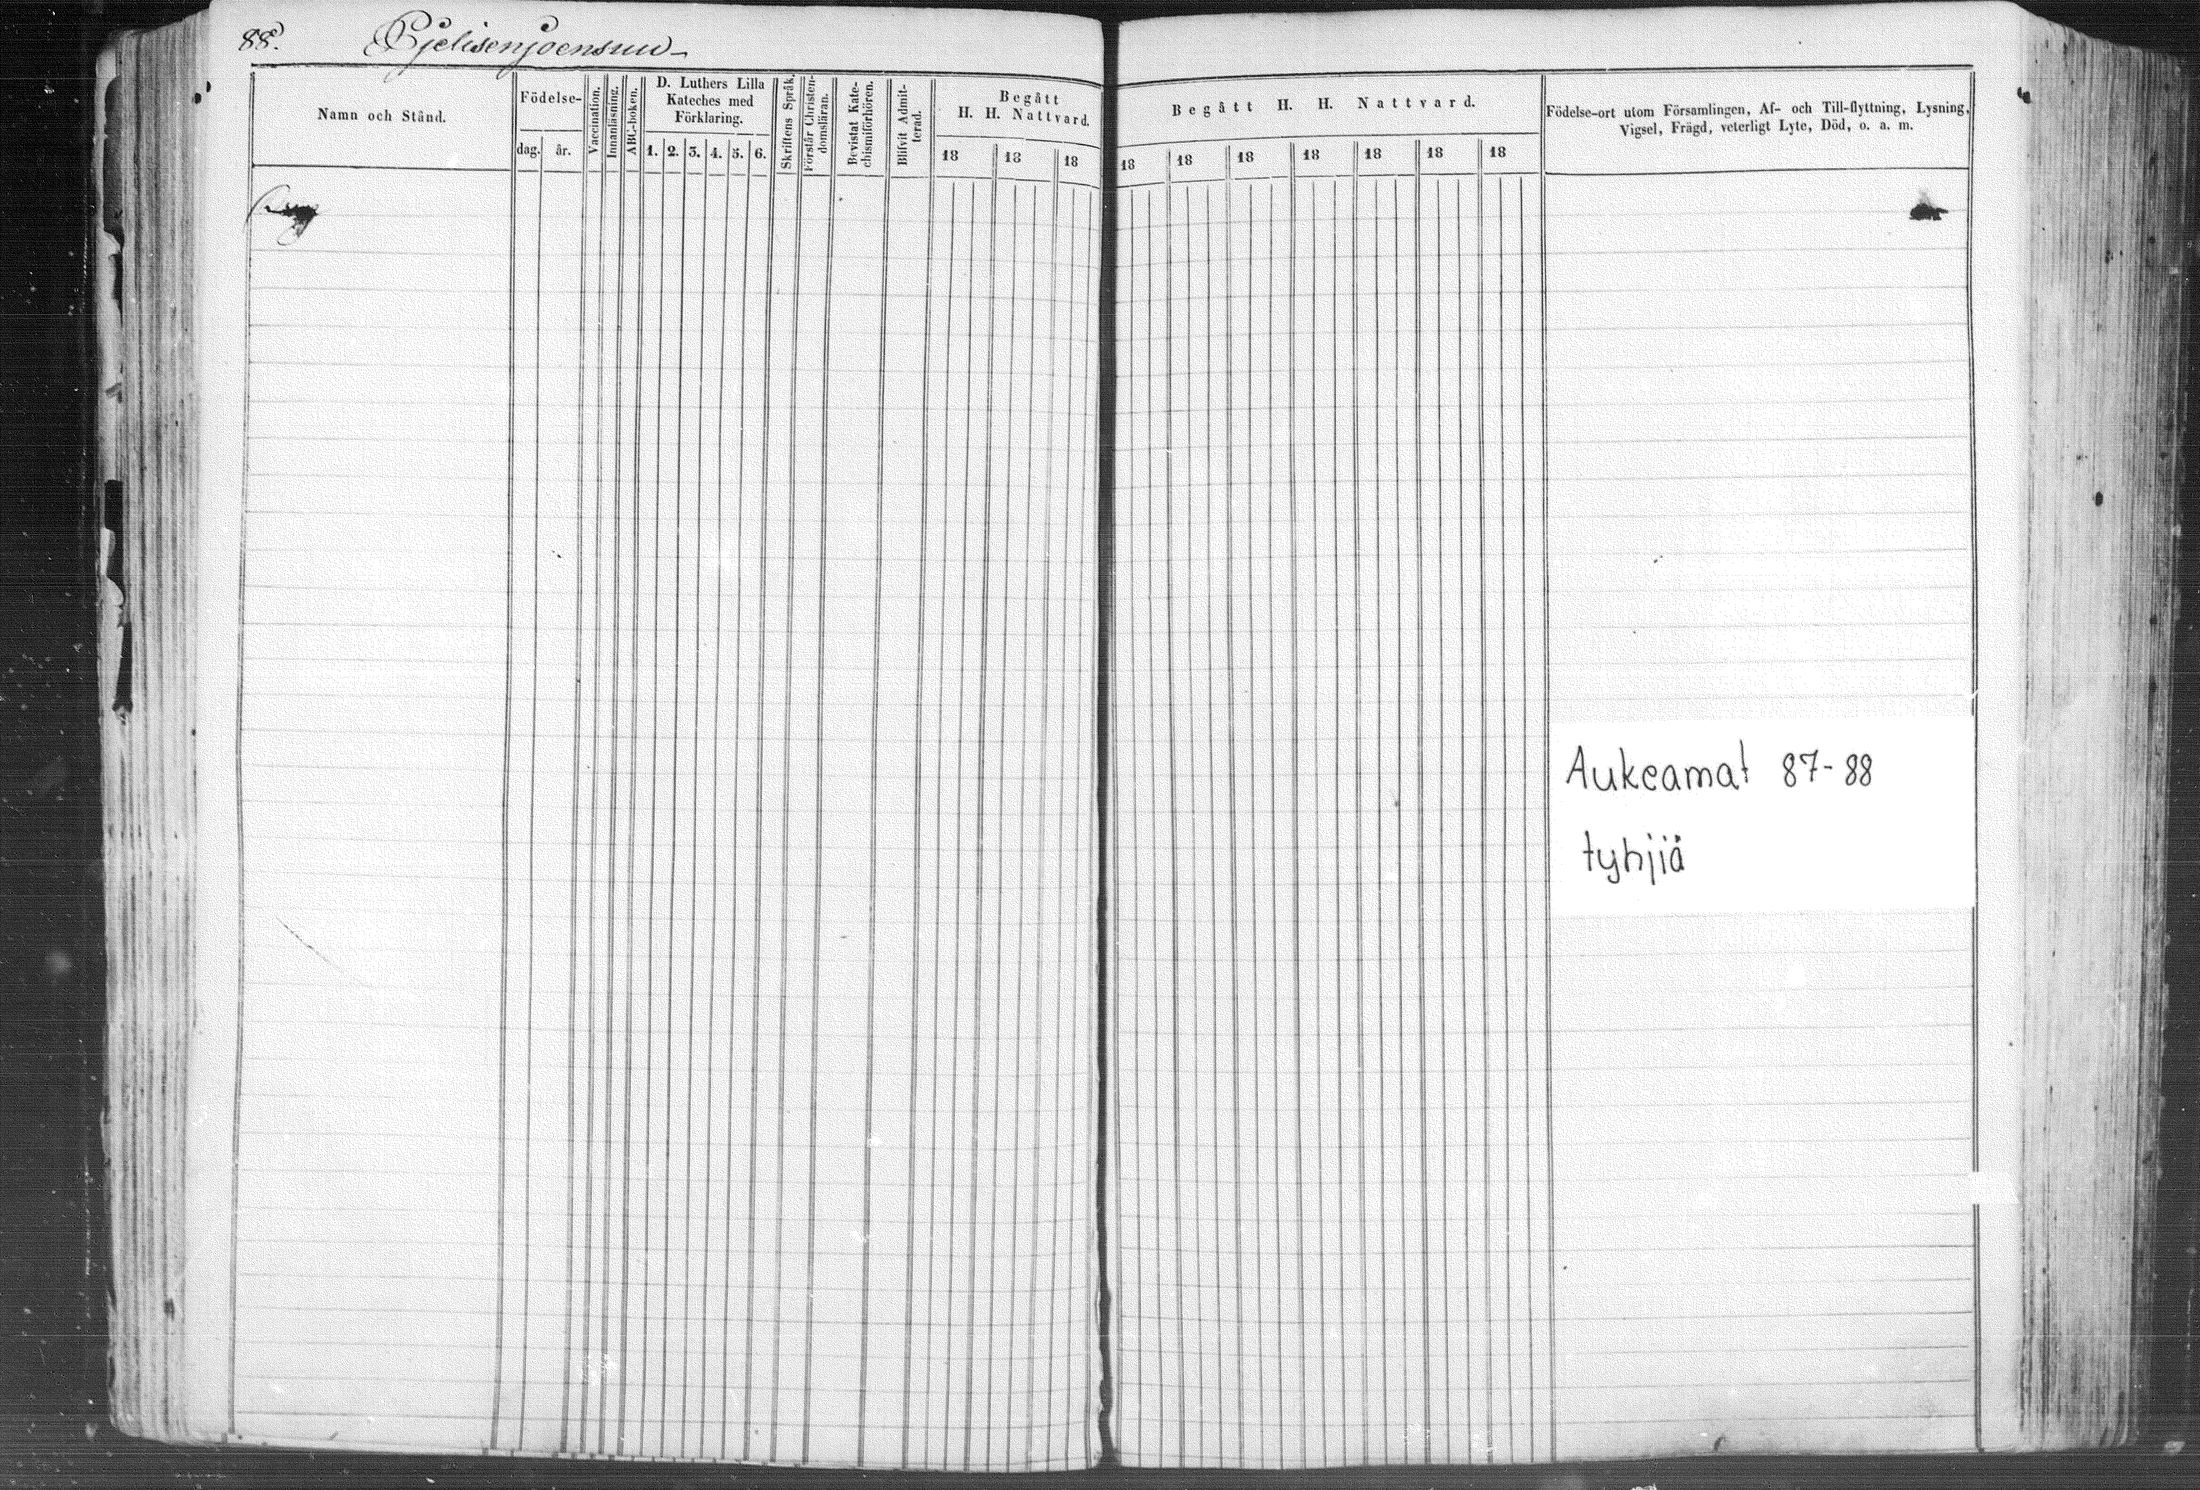 88. Pjelisenjoensuu
Namn och Stånd.
Födelse-
dag.
år.
Vaccination.
Innanläsning.
ABC-boken.
D. Luthers Lilla
Kateches med
Förklaring.
1. 2. 3. 4. 5. 6.
Skriftens Språk.
Förstår Christen-
domsläran.
Bevistat Kate-
chismiförhören.
Blifvit Admit-
terad.
Begått
H. H. Nattvard.
18 18 18
Begått H. H. Nattvard.
18 18 18 18 18 18 18
Födelse-ort utom Församlingen, Af- och Till-flyttning, Lysning,
Vigsel, Frägd, veterligt Lyte, Död, o. a. m.
Aukeamat 87-88
tyhjiä